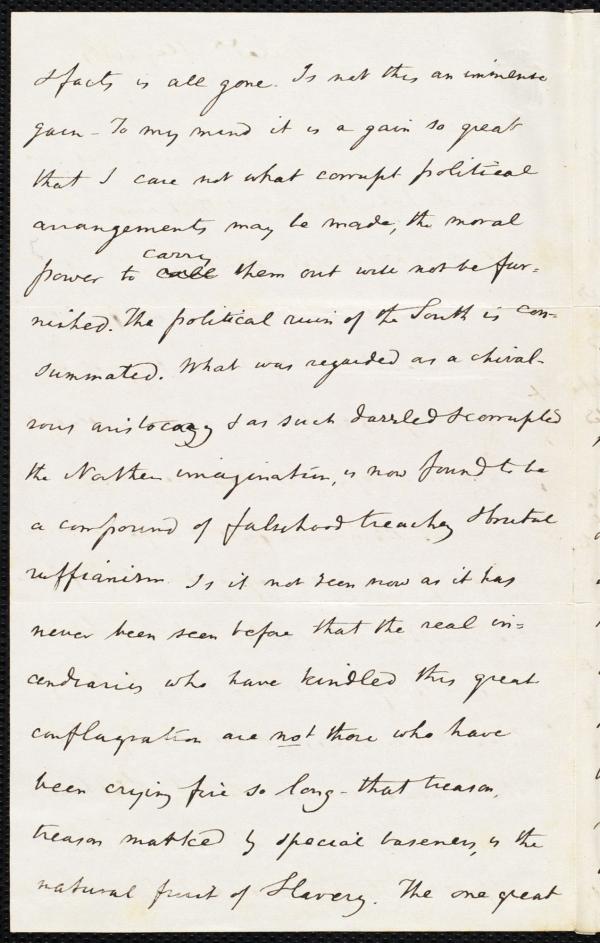 & facts is all gone. Is not this an immense
gain - To my mind it is a gain so great
that I care not what corrupt political
arrangements may be made, the moral
carry
power to call them out will not be fur=
nished. The political ruin of the South is con=
summated. What was regarded as a chival-
rous aristocacy & as such dazzled & corrupted
the Northern imagination, is now found to be
a compound of falsehood treachery & brutal
ruffianism. Is it not seen now as it has
never been seen before that the real in=
cendiaries who have kindled this great
conflagration are not those who have
been crying fire so long - that treason,
treason marked by special baseness, is the
natural fruit of Slavery. The one great